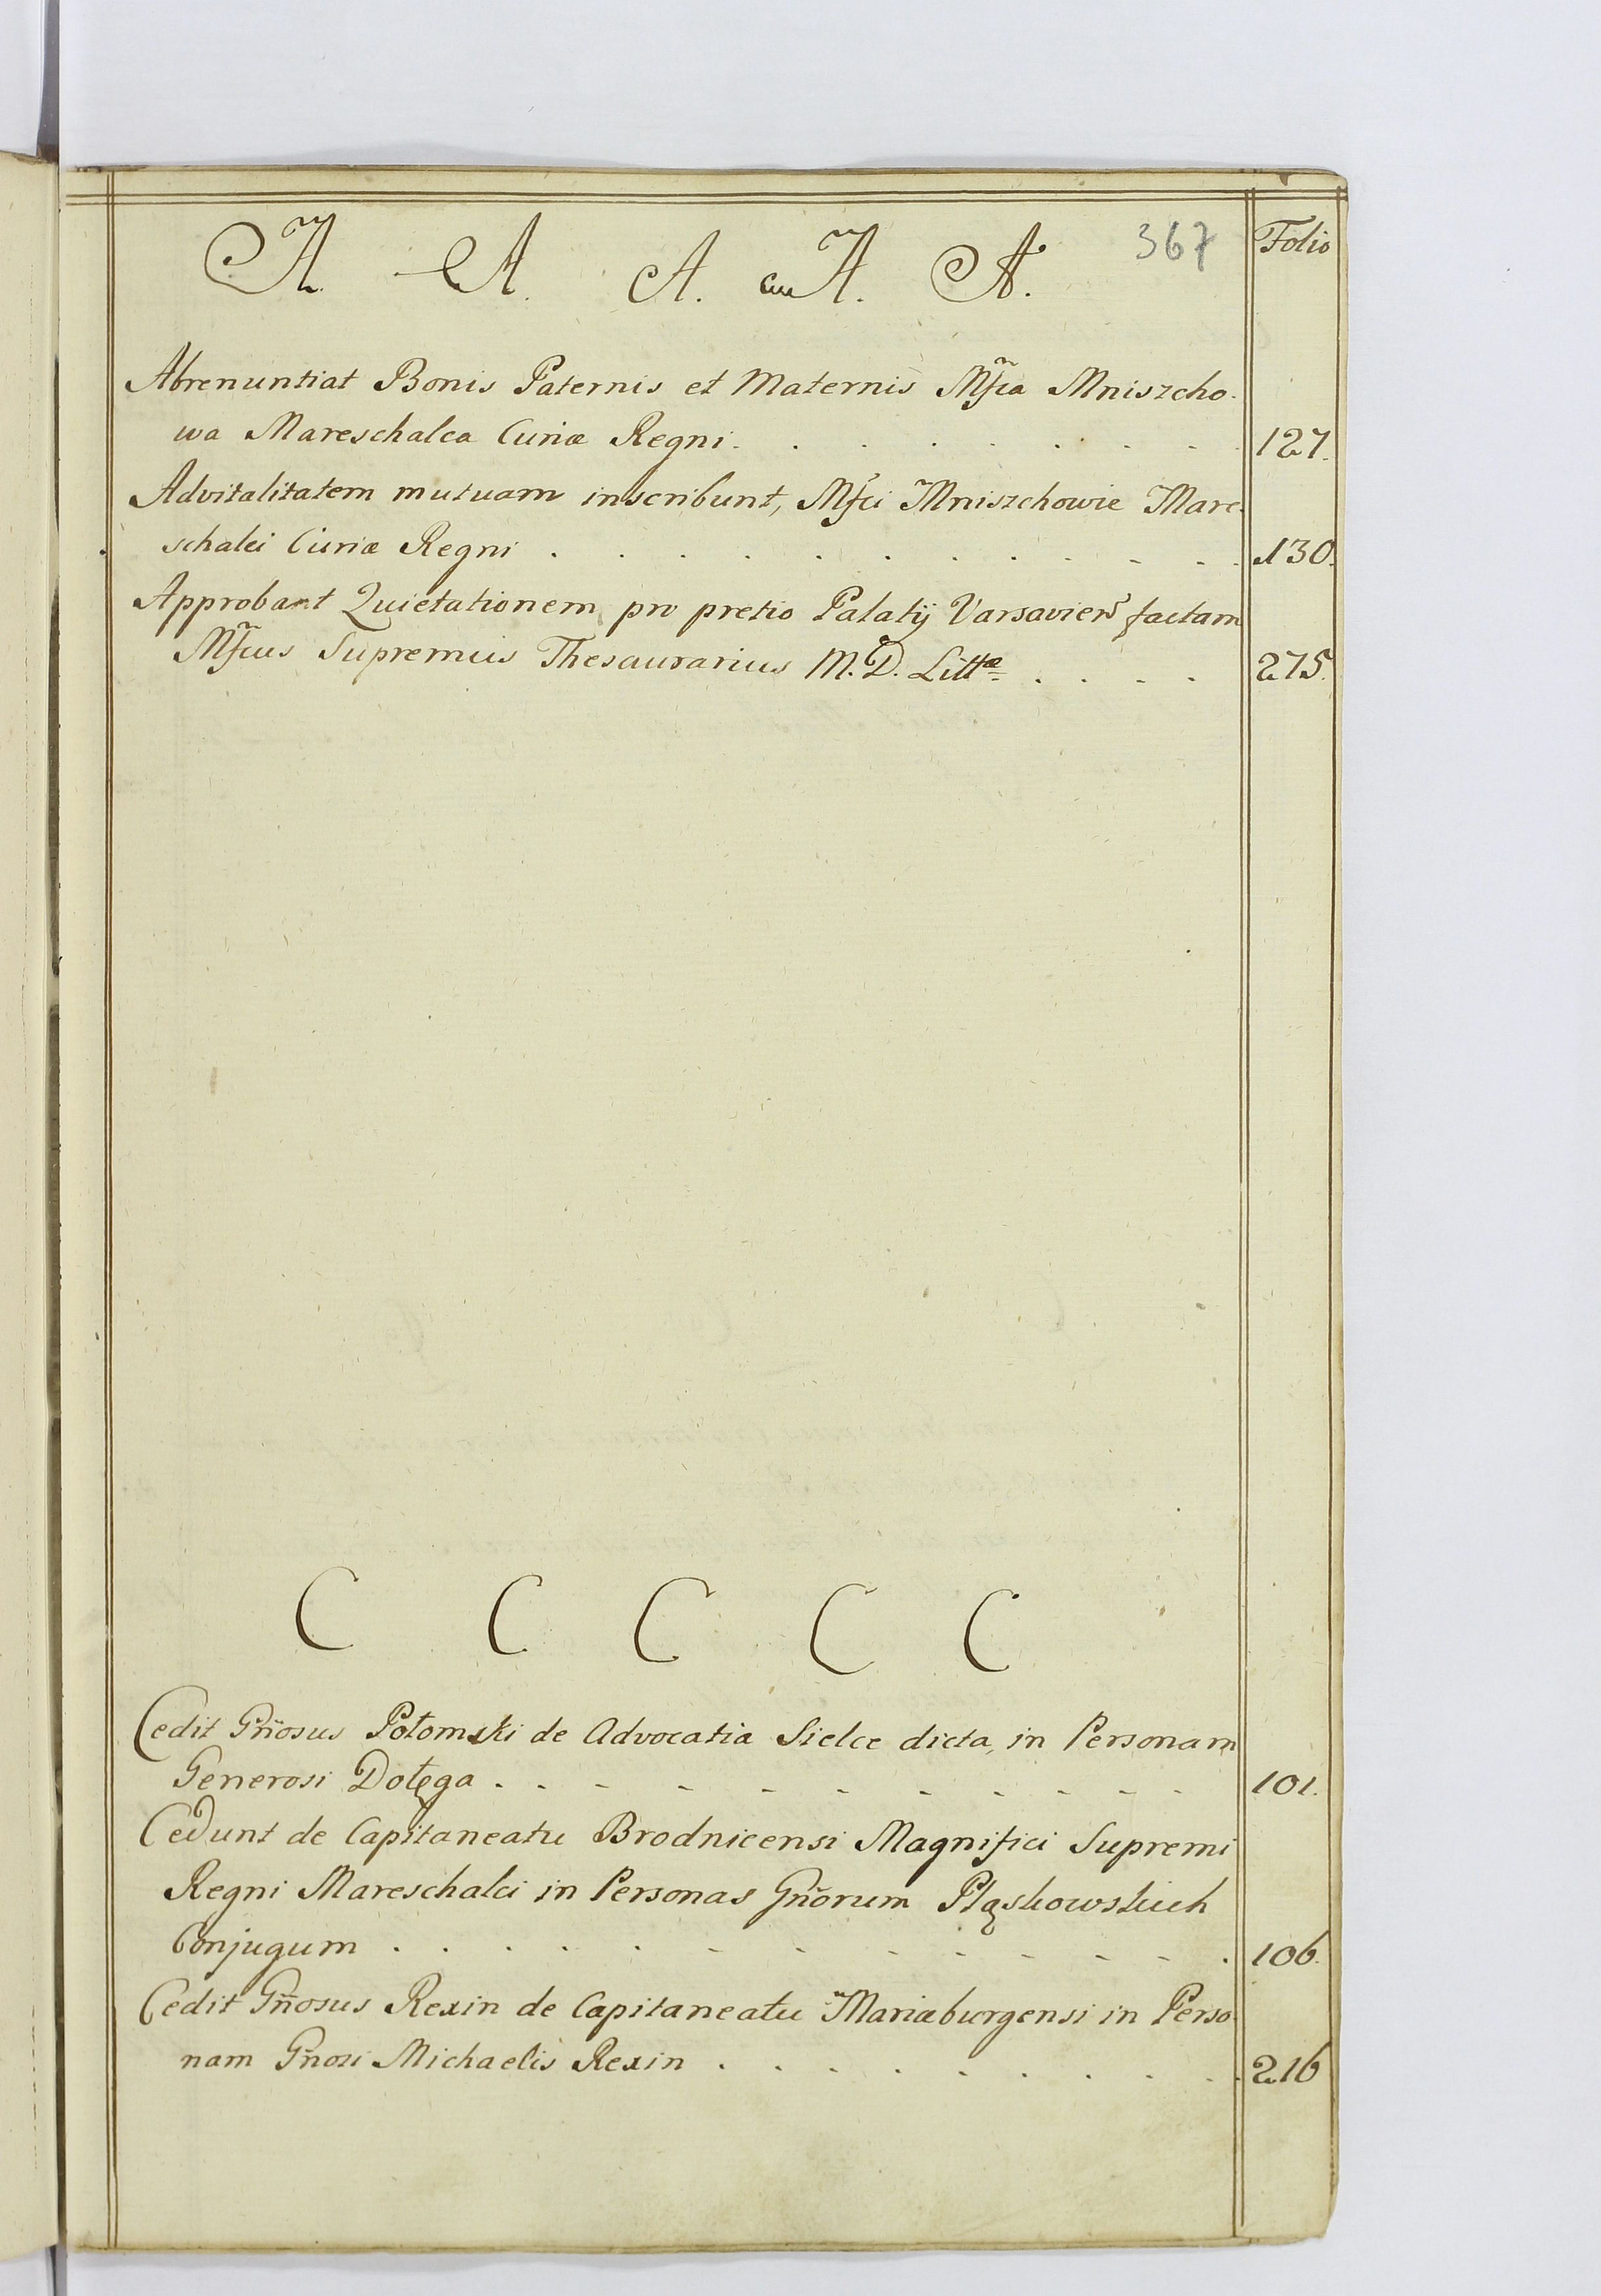 A. A. A. A. A. 367 Folio
Abrenuntiat Bonis Paternis et Maternis Mf̃ca Mniszcho-
wa Mareschalca Curiæ Regni. . . . . . . . 127.
Advitalitatem mutuam inscribunt, Mf̃ci Mniszchowie Mare-
schalci Curiæ Regni . . . . . . . . . . . 130.
Approbant Quietationem pro pretio Palatij Varsavień factam
Mf̃cus Supremus Thesaurarius M. D. Littæ . . . . 275.
C C C C C
Cedit Gñosus Połomski de Advocatia Sielce dicta, in Personam
Generosi Dołęga . . . . . . . . . . 101.
Cedunt de Capitaneatu Brodnicensi Magnifici Supremi
Regni Mareschalci in Personas Gñorum Pląskowskich
Conjugum . . . . . . . . . . . . . 106.
Cedit Gñosus Rexin de Capitaneatu Mariæburgensi in Perso-
nam Gñosi Michaelis Rexin . . . . . . . . . 216